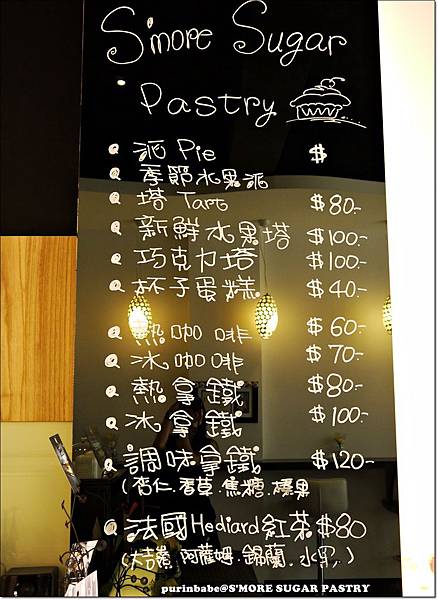 S'more Sugar
Pastry
派 Pie $
季節水果派
塔 Tart $80.-
新鮮水果塔 $100.-
巧克力塔 $100.-
杯子蛋糕 $40.-
熱咖啡 $60.-
冰咖啡 $70.-
熱拿鐵 $80.-
冰拿鐵 $100.-
調味拿鐵 $120.-
(杏仁.香草.焦糖.榛果
法國Hediard紅茶 $80
(大吉嶺.阿薩姆.錫蘭.水果)
purinbabe@S'MORE SUGAR PASTRY